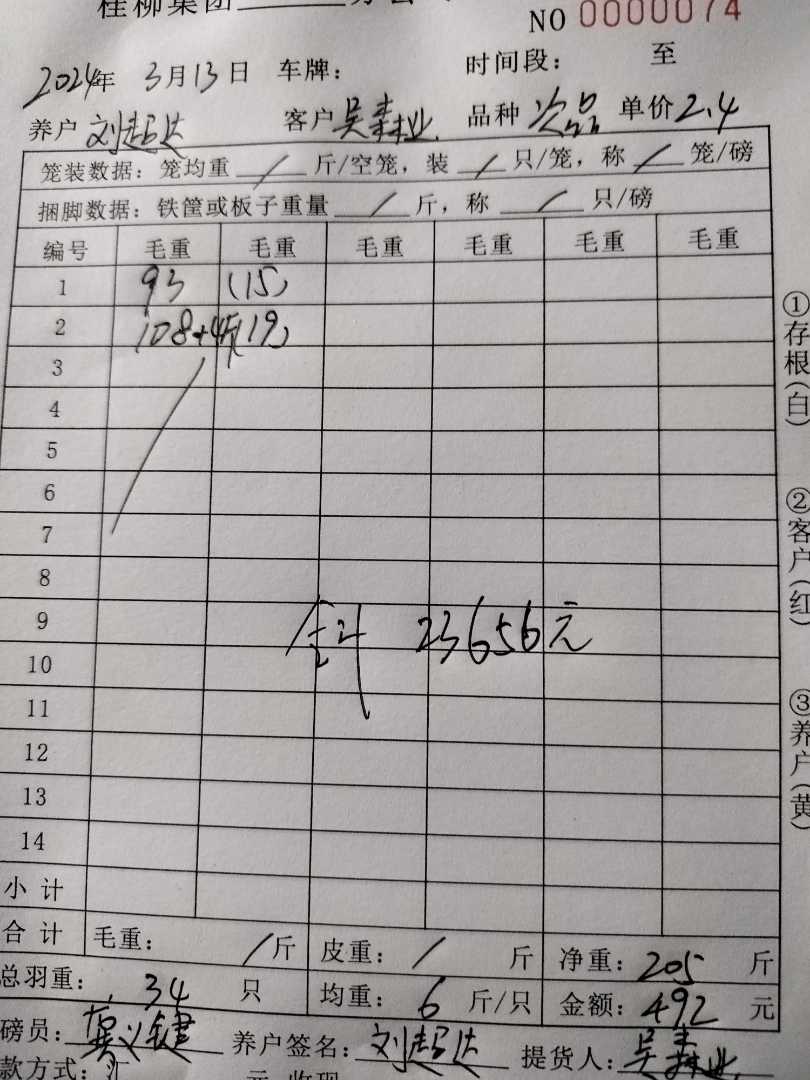 桂柳集团
NO 0000074
2024年 3月13日 车牌: 时间段: 至
养户 刘超达 客户 吴森业 品种 次品 单价 2.4
笼装数据: 笼均重 / 斤/空笼, 装 / 只/笼, 称 / 笼/磅
捆脚数据: 铁筐或板子重量 / 斤, 称 / 只/磅
编号 毛重 毛重 毛重 毛重 毛重 毛重
1 93 (15)
2 108+4斤 (19)
3
4
5
6
7
8
9
合计 23656元
10
11
12
13
14
小 计
合 计 毛重: / 斤 皮重: / 斤 净重: 205 斤
总羽重: 34 只 均重: 6 斤/只 金额: 492 元
磅员: 义键 养户签名: 刘超达 提货人: 吴森业
款方式: 汇
①存根(白)
②客户(红)
③养户(黄)